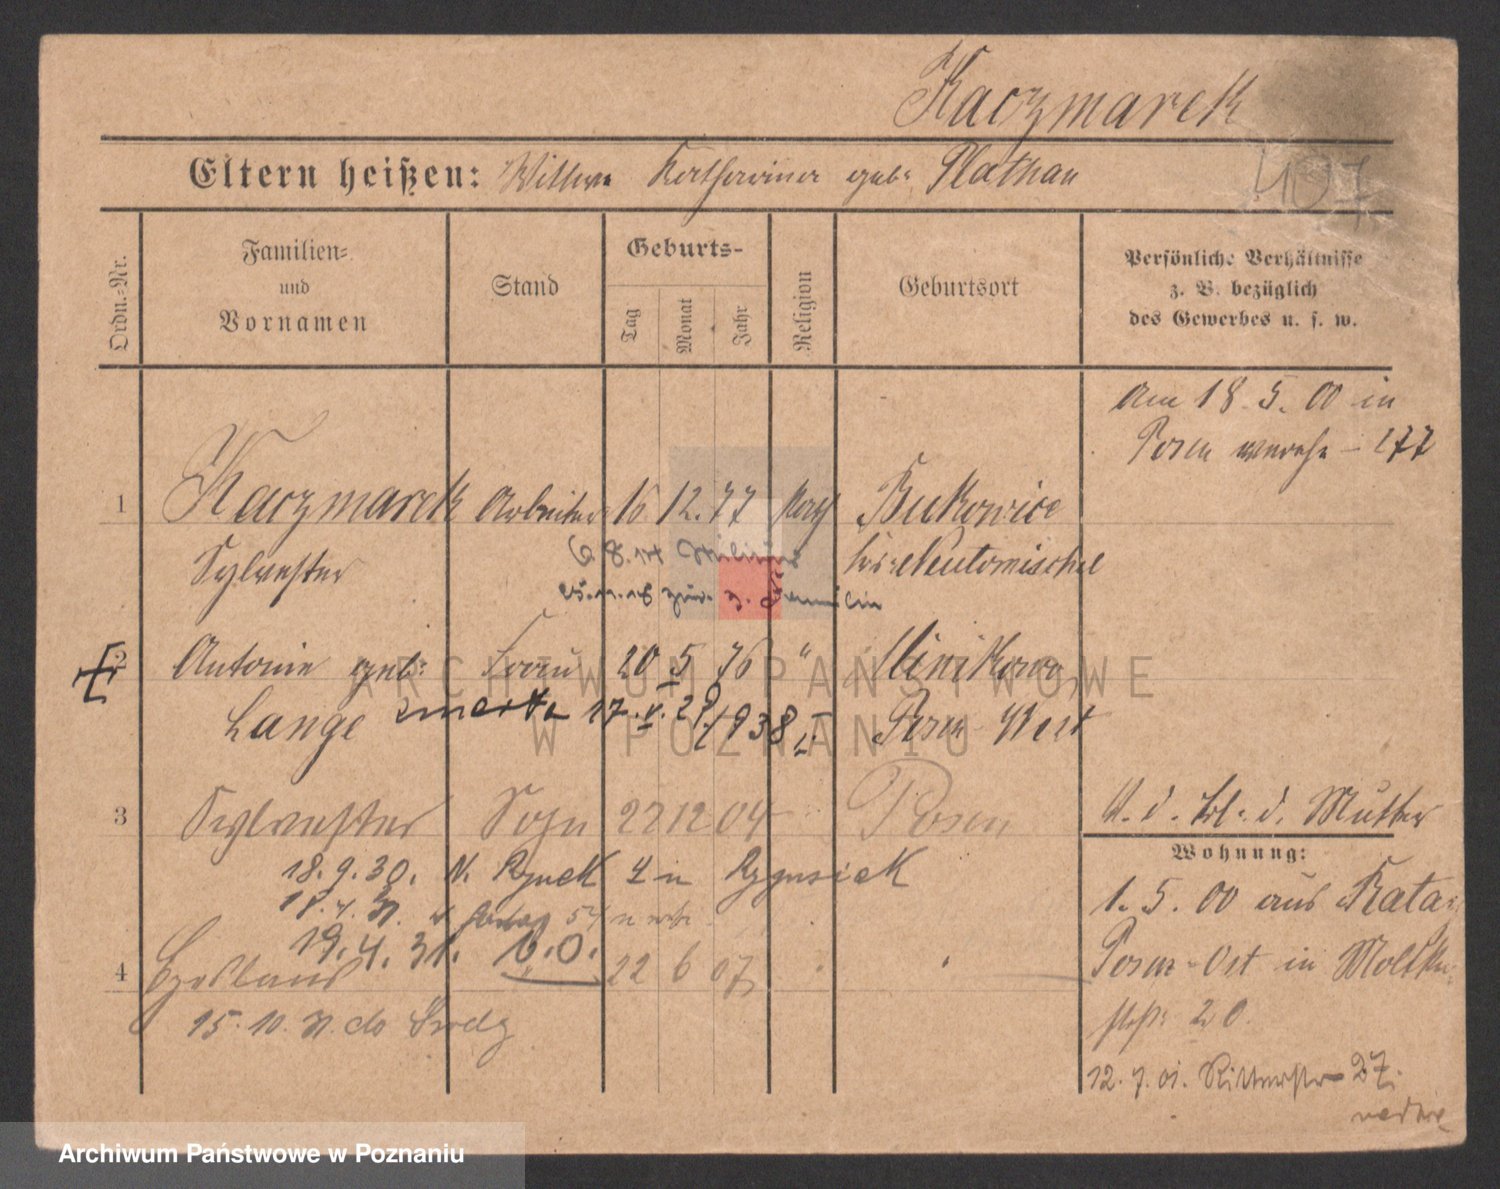 Kaczmarek
407
Eltern heißen: Wittwe Katharina geb. Plathau
Ordn.-Nr.
Familien- und Vornamen
Stand
Geburts-
Tag
Monat
Jahr
Religion
Geburtsort
Persönliche Verhältnisse
z. B. bezüglich
des Gewerbes u. s. w.
Am 18.5.00 in
Posen 177
1 Kaczmarek Arbeiter 16 12. 77 kath Bukowice
Sylvester
Neutomischel
6.8.14
25.11.18 zur. z. Familie
2 Antonie geb. Frau 20 5 76 " Minikowo
Lange zmarła 17.V. 1938 Posen West
3 Sylvester Sohn 22 12 04 Posen
18.9.30. St. Rynek 4 u
54 u
19.4.31. b.o.
4 Czeslaus 22 6 07
15.10.31. do Środy
d. d. Mutter
Wohnung:
1.5.00 aus Katai
Posen-Ost in Moltke
str. 20.
12.7.01. Ritterstr 27.
ARCHIWUM PAŃSTWOWE
W POZNANIU
Archiwum Państwowe w Poznaniu